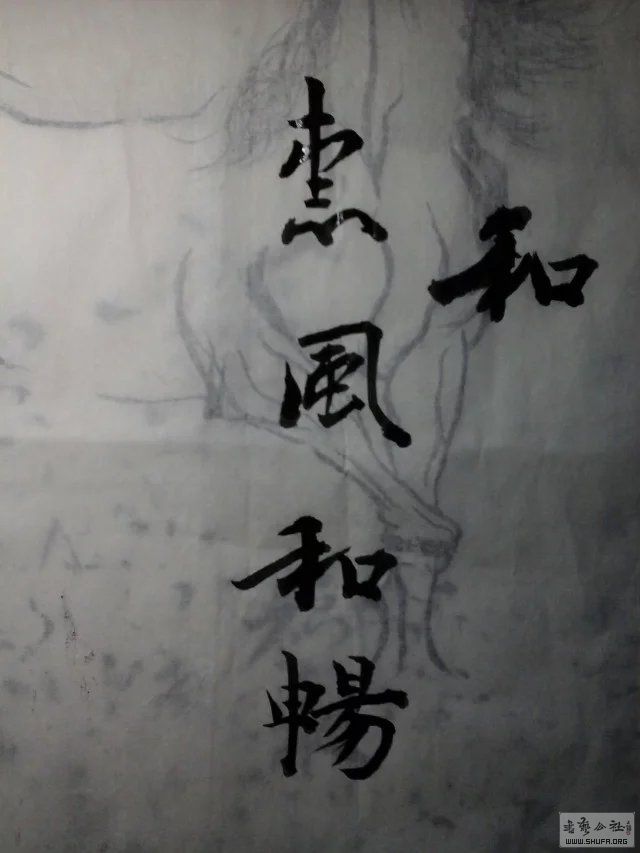 和
惠風和暢
书艺公社
WWW.SHUFA.ORG